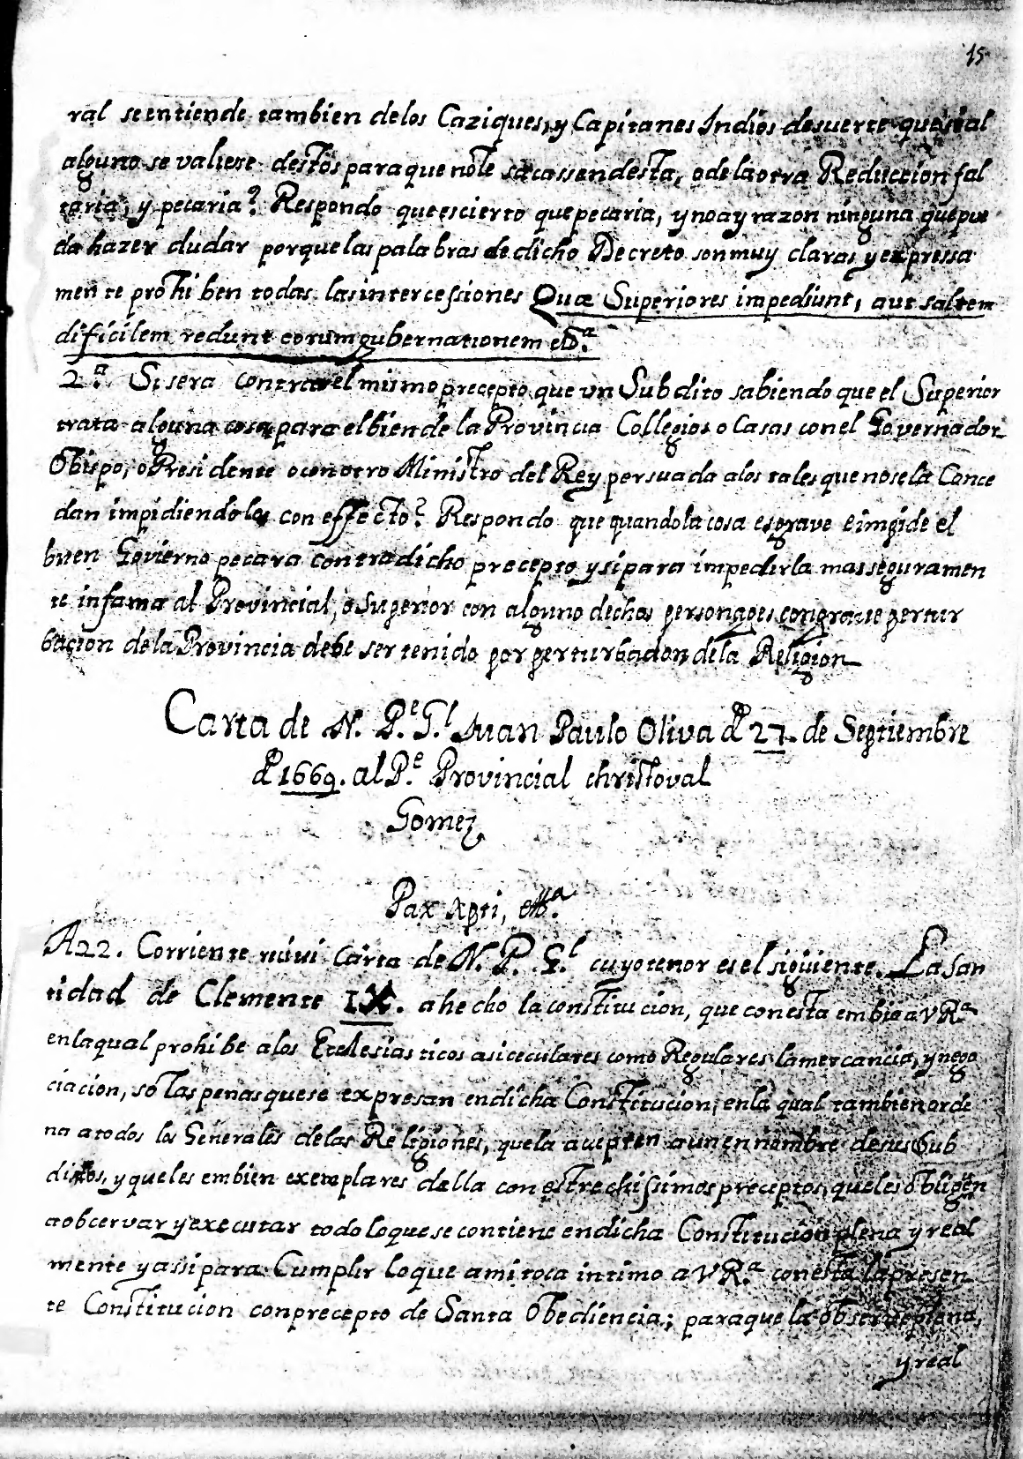 15
ral se entiende tambien de los Caziques, y Capitanes Indios de suerte que si al
alguno se valiese destos para que no le sacassen desta, o de la otra Reduccion fal
taria, y pecaria? Respondo que es cierto que pecaria, y no ay razon ninguna que pue
da hazer dudar porque las palabras de dicho Decreto son muy claras y expressa
mente prohiben todas las intercessiones Quæ Superiores impediunt, aut saltem
dificilem redunt eorum gubernationem etª
2ª Si sera contra el mismo precepto que un Subdito sabiendo que el Superior
trata alguna cosa para el bien de la Provincia Collegios o Casas con el Governador
Obispo, o Presidente o con otro Ministro del Rey persuada a los tales que no se la Conce
dan impidiendolos con effecto? Respondo que quando la cosa es grave e impide el
buen Govierno pecara contra dicho precepto y si para impedirla mas seguramen
te infama al Provincial, o Superior con alguno dechos personages con grave pertur
bacion de la Provincia debe ser tenido por perturbador de la Religion
Carta de N. P.e G.l Juan Paulo Oliva d 27. de Septiembre
d 1669. al P.e Provincial christoval
Gomez
Pax Xpti, etª
A 22. Corriente recivi Carta de N. P. G.l cuyo tenor es el siguiente. La San
tidad de Clemente IX. a hecho la constitucion, que con esta embio a VRª
en la qual prohibe a los Ecclesiasticos asi ceculares como Regulares la mercancia, y nego
ciacion, so las penas que se expresan en dicha Constitucion, en la qual tambien orde
na a todos los Generales de las Religiones, que la acepten aun en nombre de sus Sub
ditos, y que les embien exemplares della con estrechissimos preceptos, que les obligen
a obcervar y executar todo lo que se contiene en dicha Constitucion plena y real
mente y assi para Cumplir lo que a mi toca intimo a VR.ª con esta la presen
te Constitucion con precepto de Santa Obediencia; para que la observe plena,
y real